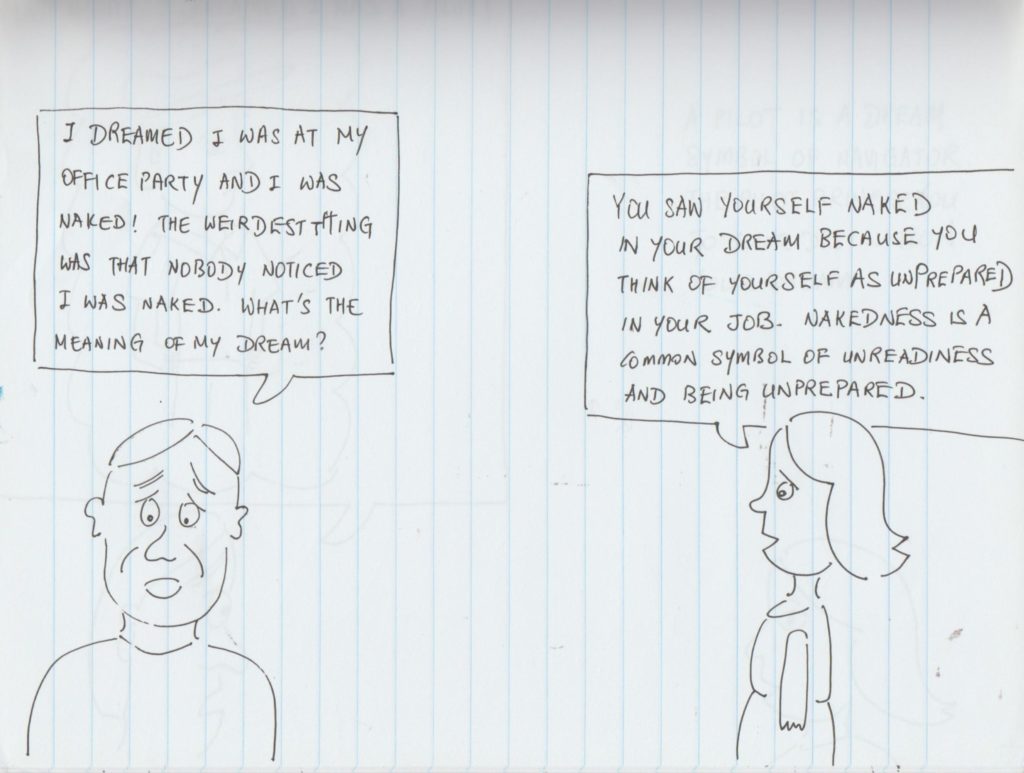 I DREAMED I WAS AT MY
OFFICE PARTY AND I WAS
NAKED! THE WEIRDEST THING
WAS THAT NOBODY NOTICED
I WAS NAKED. WHAT'S THE
MEANING OF MY DREAM?
YOU SAW YOURSELF NAKED
IN YOUR DREAM BECAUSE YOU
THINK OF YOURSELF AS UNPREPARED
IN YOUR JOB. NAKEDNESS IS A
COMMON SYMBOL OF UNREADINESS
AND BEING UNPREPARED.